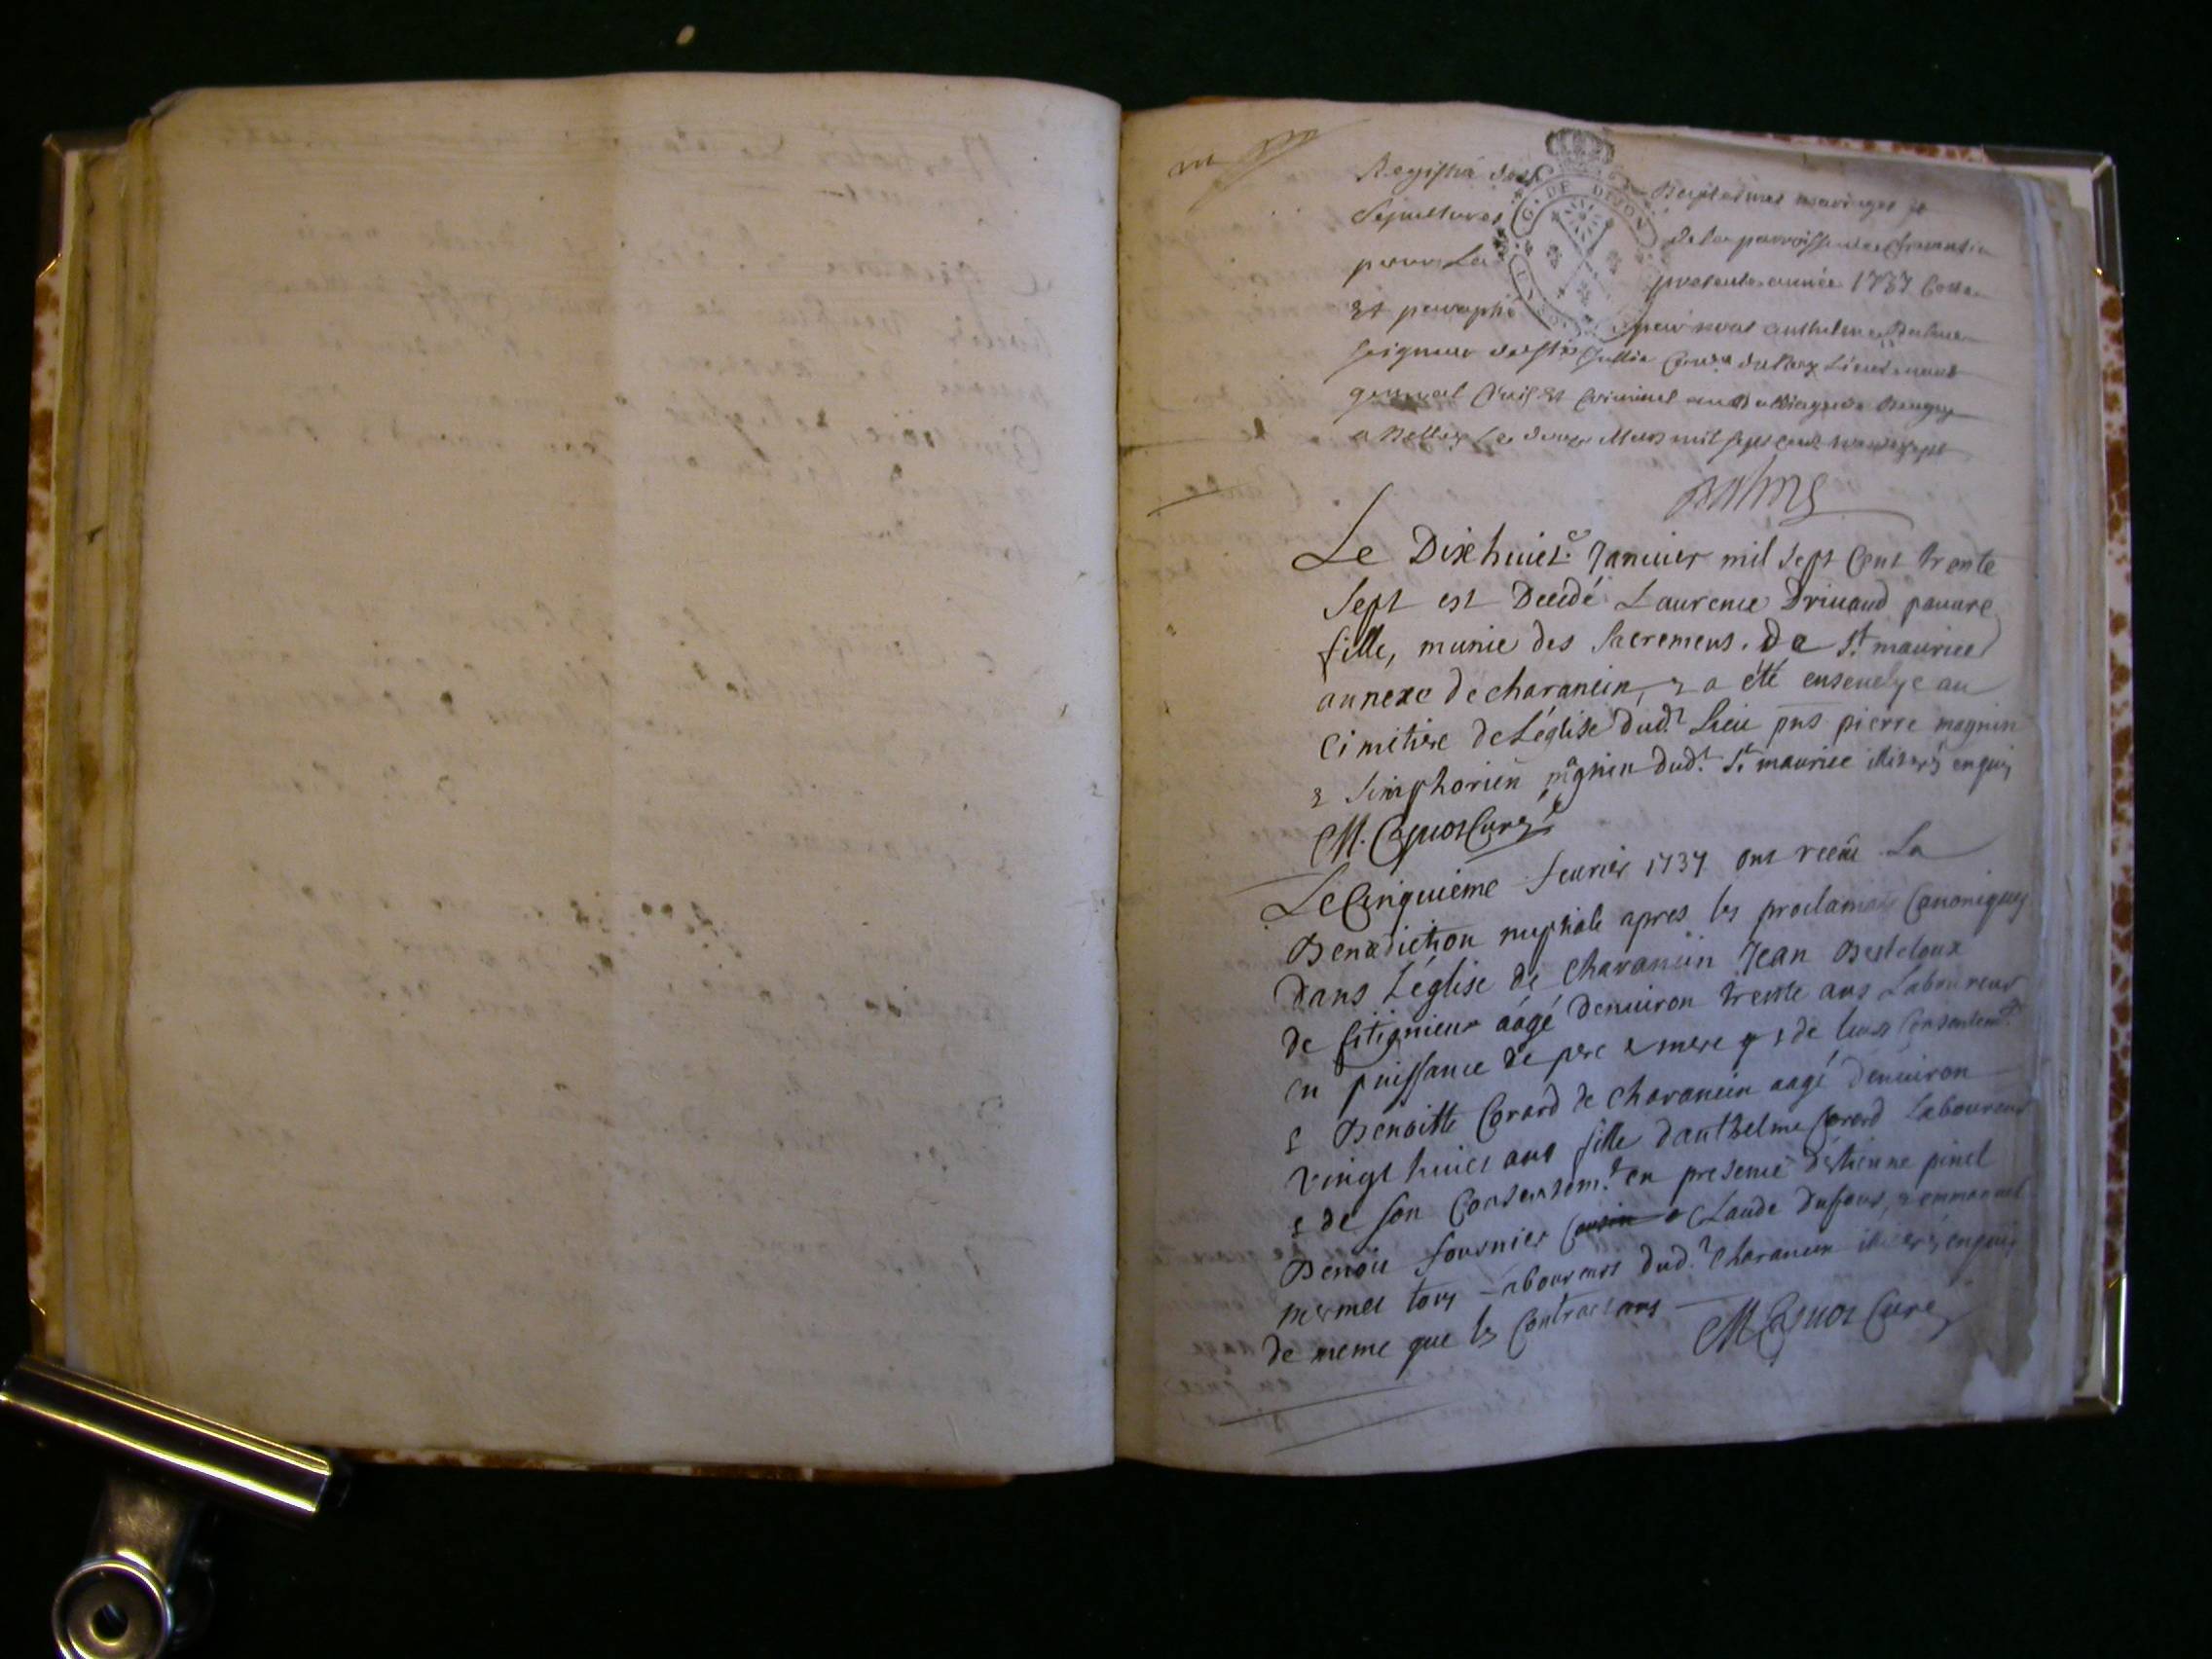 Registre des Baptesmes mariages et
Sepultures de la parroisse de Charancin
pour La presente année 1737 Cotté
Et paraphé par nous Anthelme Balme
seigneur de Ste Jullie Coner du Roy Lieutenant
general Civil Et Criminel au Balliage de Bugey
a Belley Le Mars mil sept cent trente sept
Balme
G. DE DIJON
Le Dixhuict.e Januier mil sept Cent trente
sept est Decedé Laurence Driuand pauure
fille, munie des sacremens. De St maurice
annexe de charancin, & a été enseuelye au
Cimetiere de L'église dud.t Lieu pns pierre magnin
& simphorien magnin dud.t St maurice illiterés enquis
M. Cosnot Curé
Le Cinquieme feurier 1737 ont receu La
Benediction nuptiale apres les proclamaõs Canoniques
dans L'église de charancin Jean Berteloux
de fitignieu aágé denuiron trente ans Laboureur
en puissance de pere & mere & de leurs Consentemt
& Benoitte Corard de charancin aagé denuiron
vingt huict ans fille danthelme Corard Laboureur
& de son Consentem.t en presence d'étienne pinel
Benoit fournier Claude Dufour, & emmanuel
mermet tous Laboureurs dud.t Charancin illiterés enquis
de meme que les Contractans M Cosnot Curé